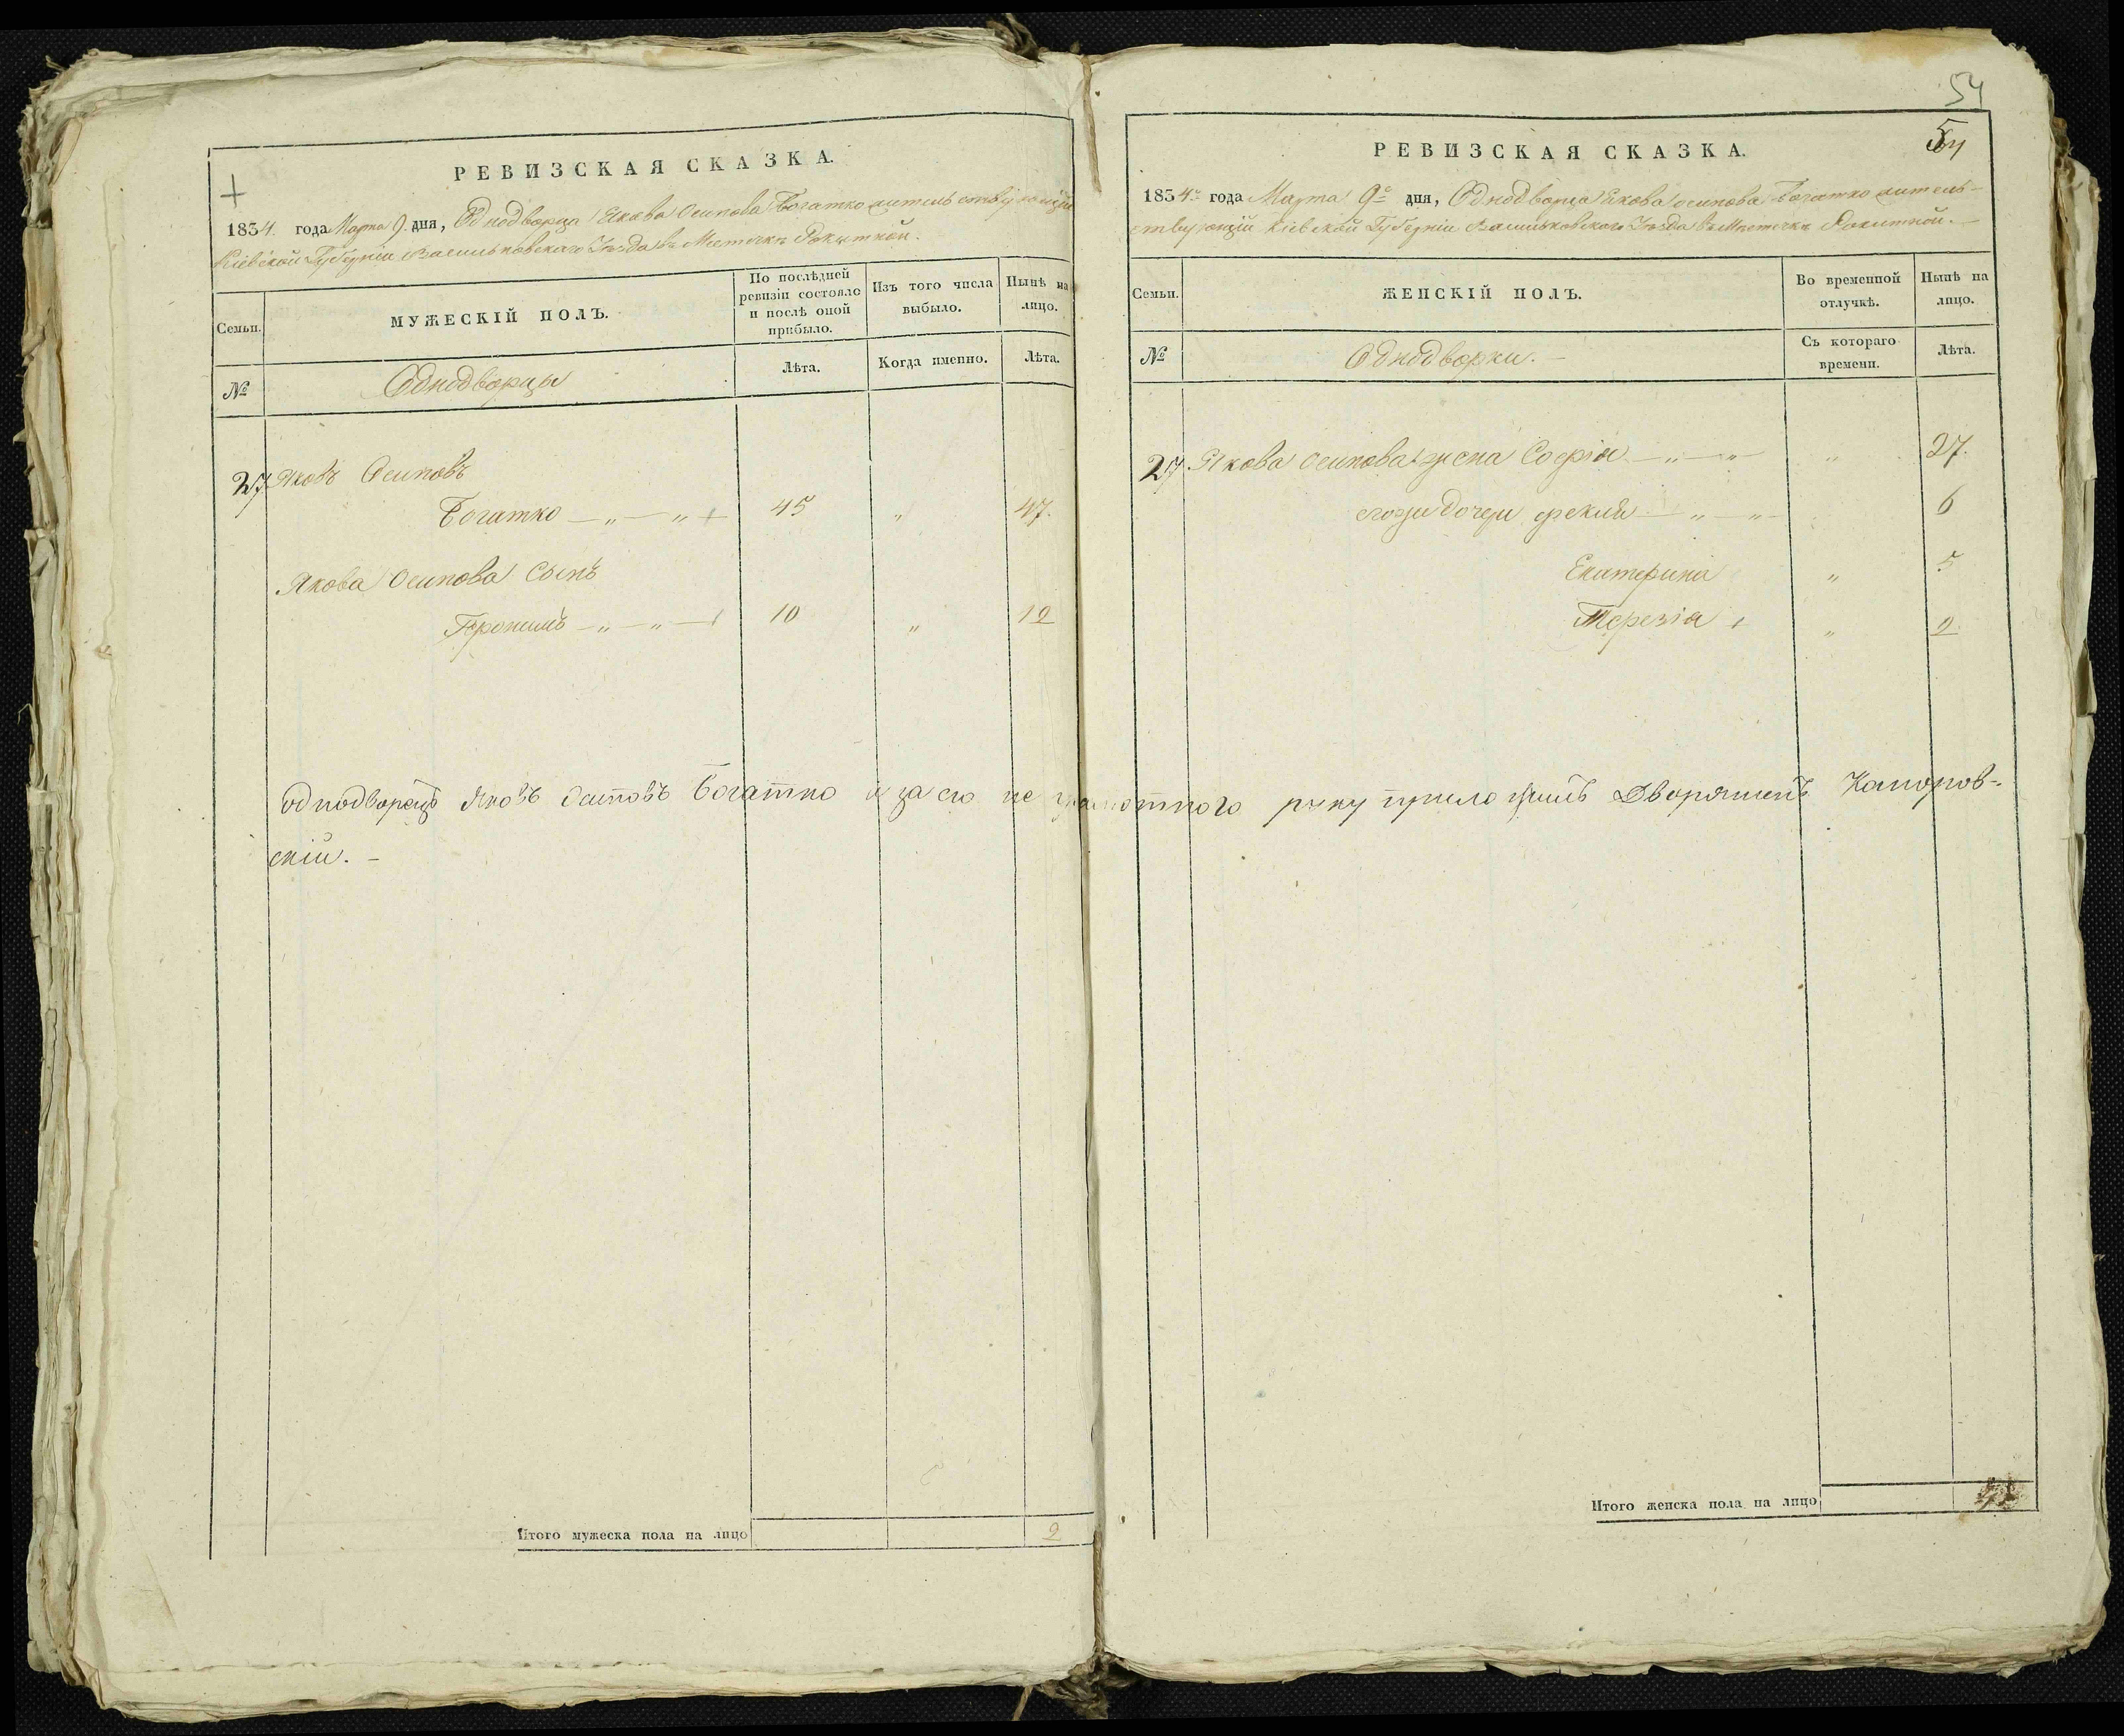 РЕВИЗСКАЯ СКАЗКА.
1834. года Марта 9. дня, Однодворца Якова Осипова Богатко жительствующій
Кіевской Губерніи Васильковскаго Уѣзда въ Мѣстечкѣ Рокитной.
Семьи.
МУЖЕСКІЙ ПОЛЪ.
По послѣдней ревизіи состояло и послѣ оной прибыло.
Изъ того числа выбыло.
Нынѣ на лицо.
№
Однодворцы
Лѣта.
Когда именно.
Лѣта.
27 Яковъ Осиповъ
Богатко — „ — „ 45 „ 47.
Якова Осипова Сынъ
— „ — „ — 10 „ 12
Однодворецъ Яковъ Осиповъ Богатко а за его не грамотного руку приложилъ Дворянинъ
скій. –
Итого мужеска пола на лицо 2
54
54
РЕВИЗСКАЯ СКАЗКА.
1834го года Марта 9го дня, Однодворца Якова Осипова Богатко житель-
ствующій Кіевской Губерніи Васильковского Уѣзда въ Мѣстечкѣ Рокитной. —
Семьи.
ЖЕНСКІЙ ПОЛЪ.
Во временной отлучкѣ.
Нынѣ на лицо.
№
Однодворки. –
Съ котораго времени.
Лѣта.
27 Якова Осипова жена Софія — „ — „ — „ 27.
его же дочери — „ — „ — 6
Екатерина „ 5
Терезія „ 2
Итого женска пола на лицо 4